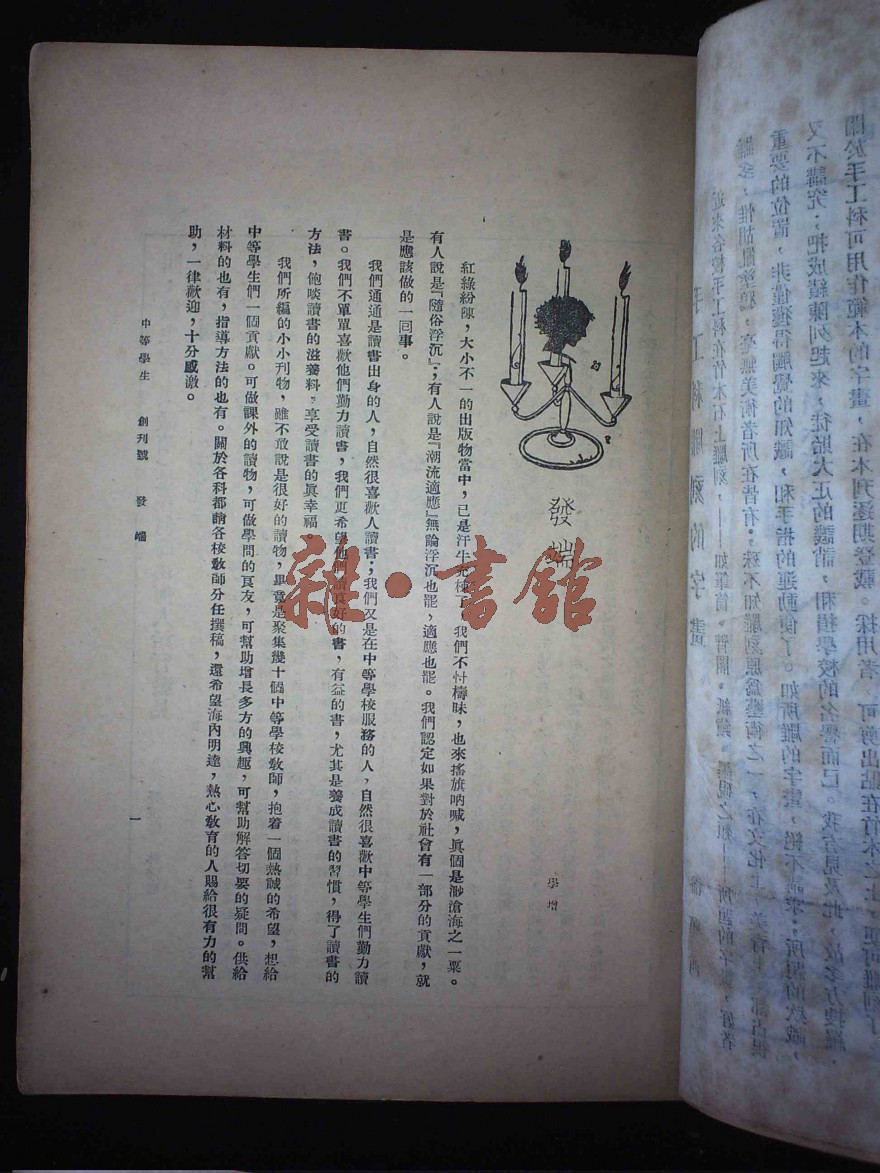 發端
學增
紅綠紛陳，大小不一的出版物當中，已是汗牛充棟了。我們不忖檮昧，也來搖旗吶喊，眞個是渺滄海之一粟。
有人說是『隨俗浮沉』；有人說是『潮流適應』無論浮沉也罷，適應也罷。我們認定如果對於社會有一部分的貢獻，就
是應該做的一回事。
我們通通是讀書出身的人，自然很喜歡人讀書；我們又是在中等學校服務的人，自然很喜歡中等學生們勤力讀
書。我們不單單喜歡他們勤力讀書，我們更希望他們讀良好的書，有益的書，尤其是養成讀書的習慣，得了讀書的
方法，飽啖讀書的滋養料，享受讀書的眞幸福。
我們所編的小小刊物，雖不敢說是很好的讀物，畢竟是聚集幾十個中等學校敎師，抱着一個熱誠的希望，想給
中等學生們一個貢獻。可做課外的讀物，可做學問的良友，可幫助增長多方的興趣，可幫助解答切要的疑問。供給
材料的也有，指導方法的也有。關於各科都請各校敎師分任撰稿，還希望海內明達，熱心敎育的人賜給很有力的幫
助，一律歡迎，十分感激。
中等學生　創刊號　發端
一
雜·書館
手工科雕刻的字畫
近來各校手工科在竹木石上雕刻，
雖多，惟胡亂塗鴉，毫無美術者所在皆有。殊不知雕刻原爲藝術之一，在文化上
重要的位置，非僅獲得觸覺的知識，和手指的運動便了。如所雕的字畫，絕不講求；所選的欵識，
又不講究；把成績陳列起來，徒貽大疋的譏誚，和損學校的名譽而已。我有見及此，故多方搜羅
關於手工科可用作範本的字畫，在本刊逐期登載。採用者，可剪出黏在竹木之上，便可雕刻了。